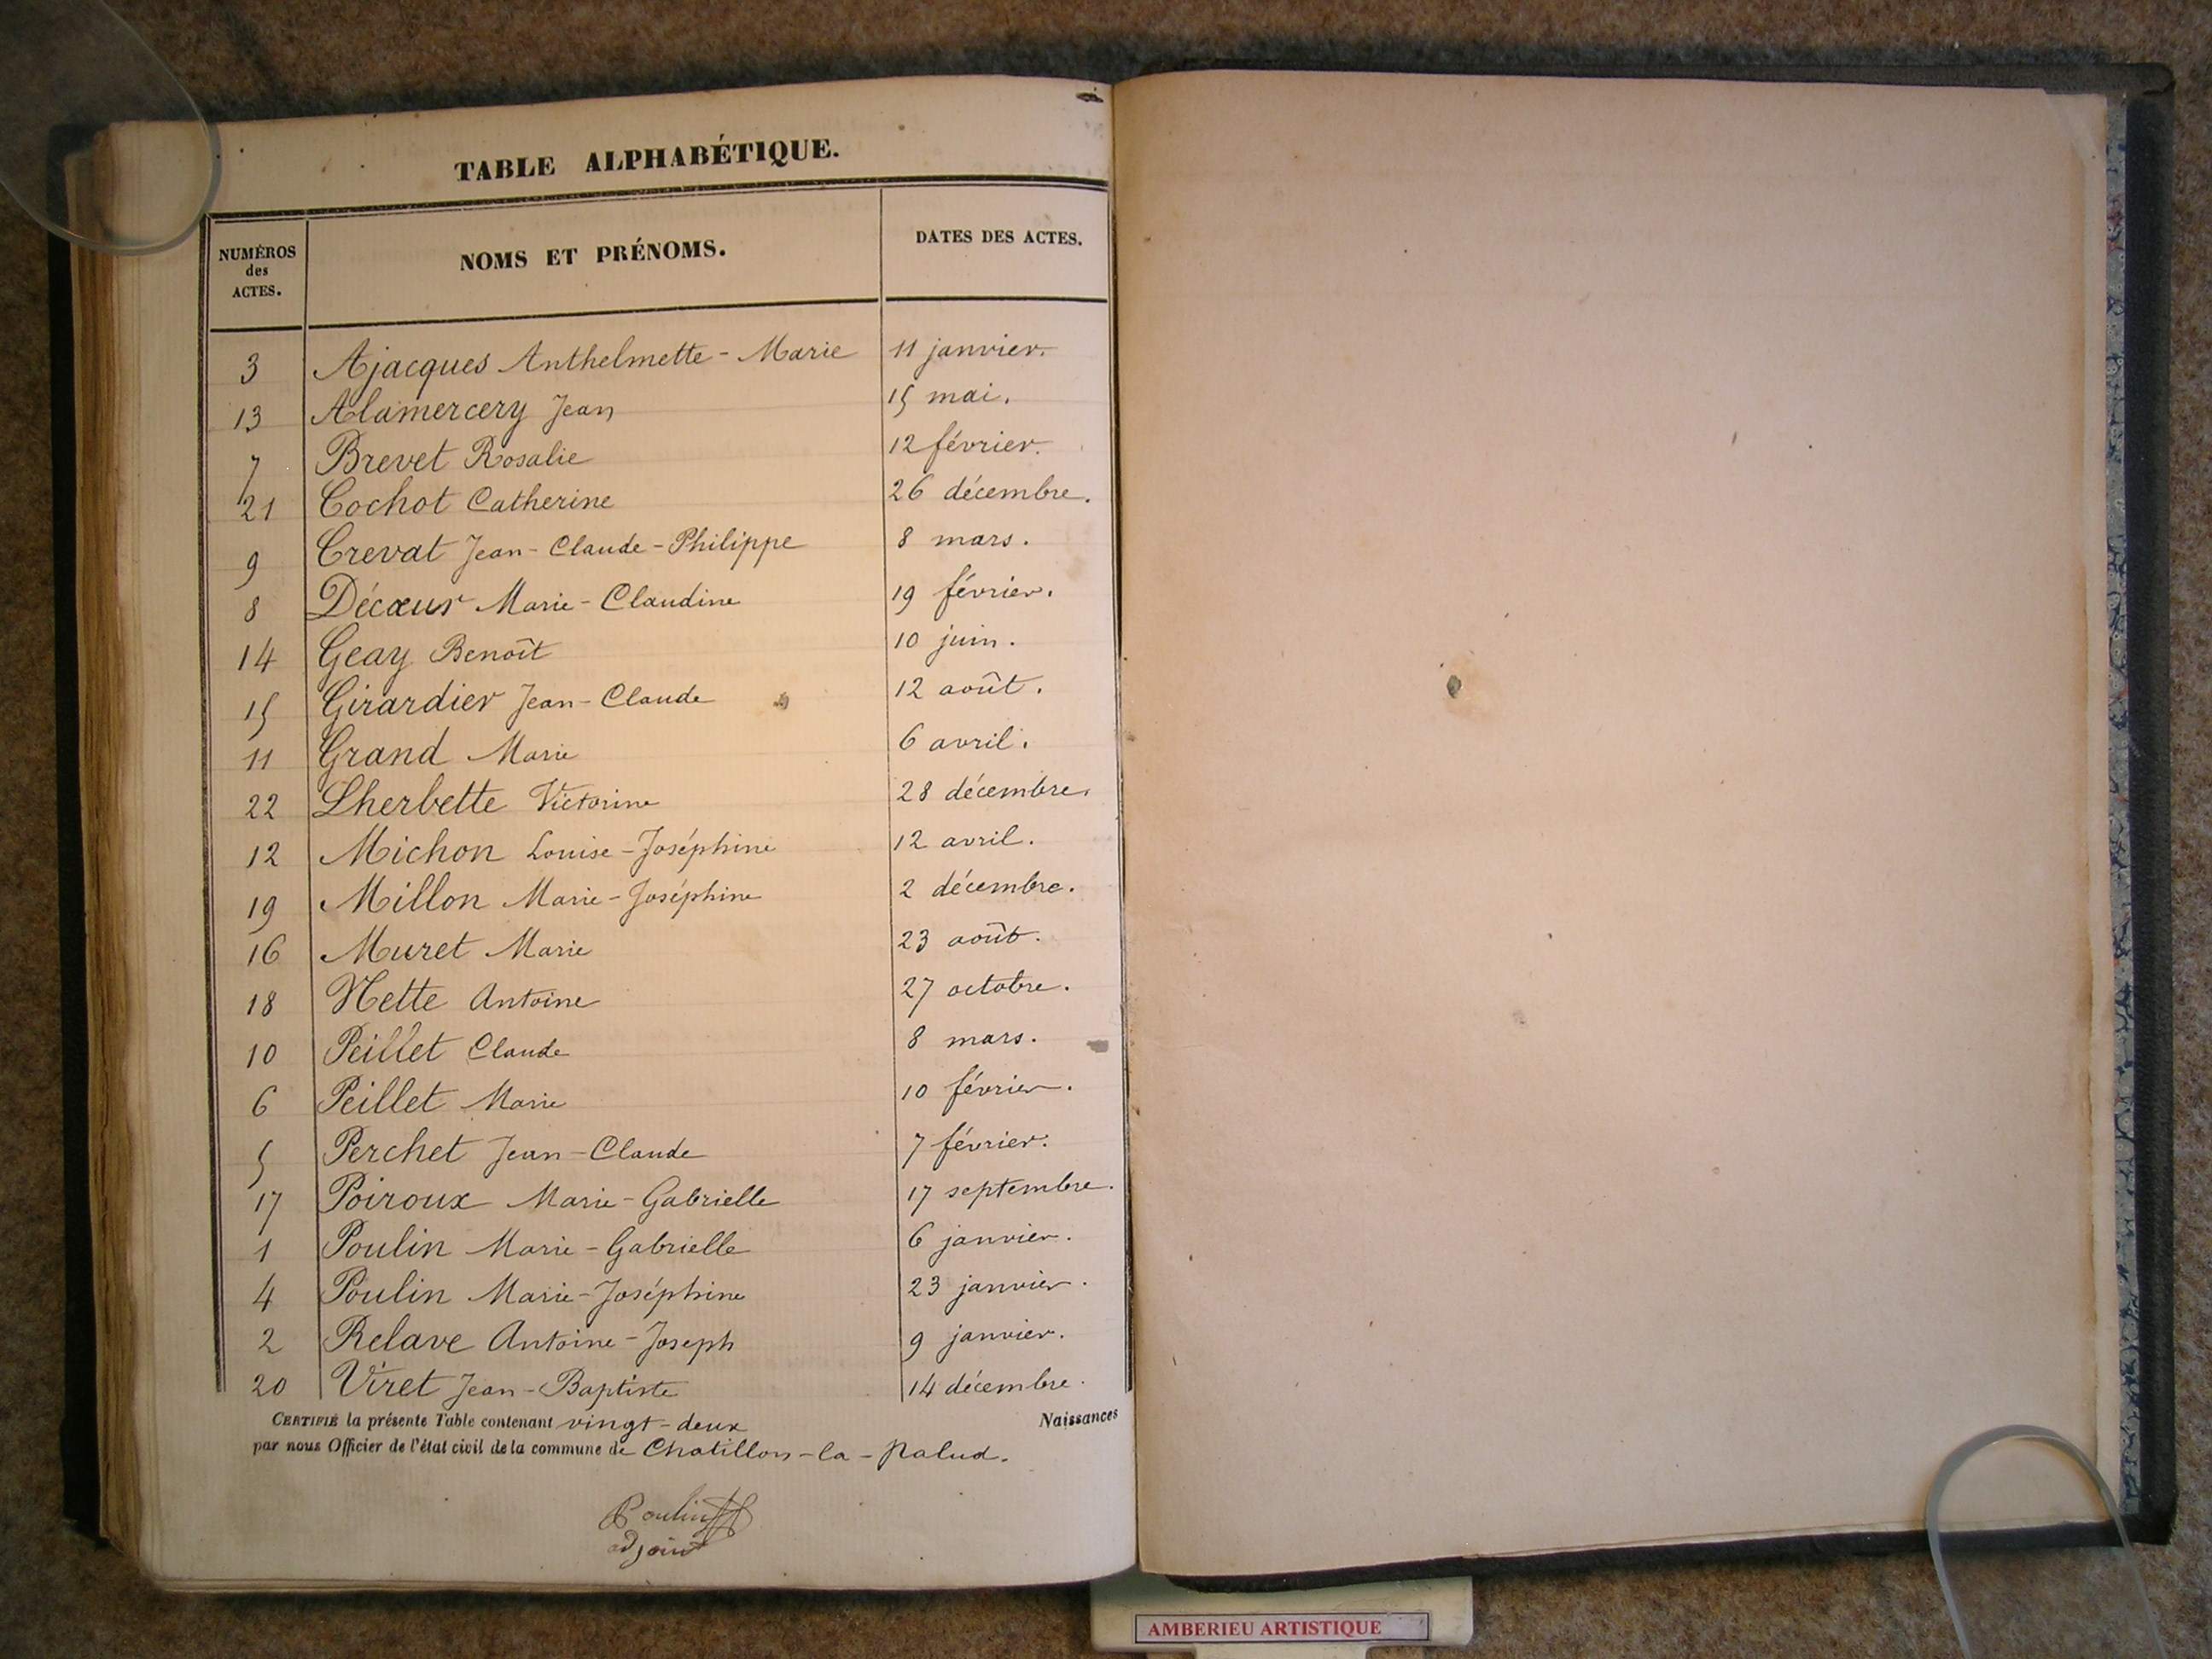 TABLE ALPHABÉTIQUE.
NUMÉROS des ACTES. NOMS ET PRÉNOMS. DATES DES ACTES.
3 Ajacques Anthelmette - Marie 11 janvier.
13 Alamercery Jean 15 mai.
7 Brevet Rosalie 12 février.
21 Cochot Catherine 26 décembre.
9 Crevat Jean - Claude - Philippe 8 mars.
8 Décœur Marie - Claudine 19 février.
14 Geay Benoît 10 juin.
15 Girardier Jean - Claude 12 août.
11 Grand Marie 6 avril.
22 Lherbette Victorine 28 décembre.
12 Michon Louise - Joséphine 12 avril.
19 Millon Marie - Joséphine 2 décembre.
16 Muret Marie 23 août.
18 Nette Antoine 27 octobre.
10 Peillet Claude 8 mars.
6 Peillet Marie 10 février.
5 Perchet Jean - Claude 7 février.
17 Poiroux Marie - Gabrielle 17 septembre.
1 Poulin Marie - Gabrielle 6 janvier.
4 Poulin Marie - Joséphine 23 janvier.
2 Relave Antoine - Joseph 9 janvier.
20 Viret Jean - Baptiste 14 décembre.
CERTIFIÉ la présente Table contenant vingt - deux Naissances
par nous Officier de l'état civil de la commune de Chatillon - la - Palud.
Poulin
adjoint
AMBERIEU ARTISTIQUE